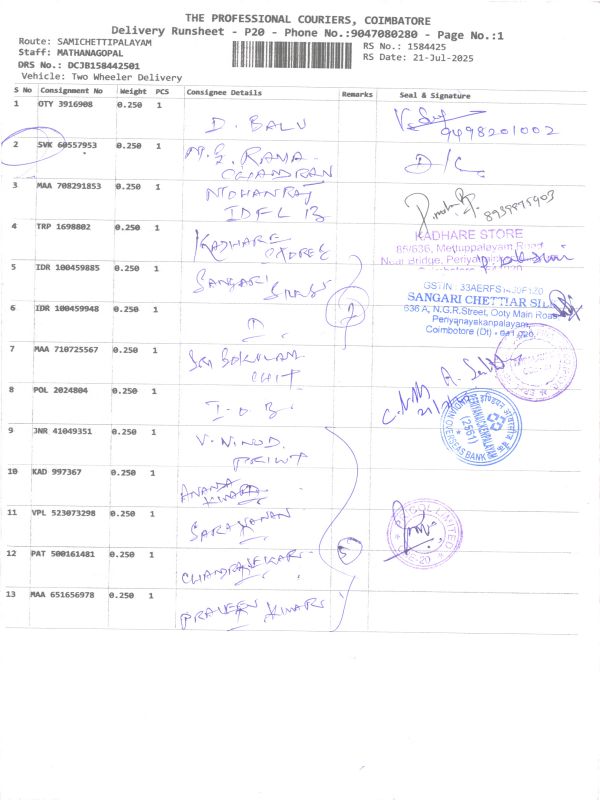 THE PROFESSIONAL COURIERS, COIMBATORE
Delivery Runsheet - P20 - Phone No.:9047080280 - Page No.:1
Route: SAMICHETTIPALAYAM
Staff: MATHANAGOPAL
DRS No.: DCJB158442501
Vehicle: Two Wheeler Delivery
RS No.: 1584425
RS Date: 21-Jul-2025
S No Consignment No Weight PCS Consignee Details Remarks Seal & Signature
1 OTY 3916908 0.250 1 D. BALU 9498201002
2 SVK 60557953 0.250 1 RAMA CHANDRAN D/C
3 MAA 708291853 0.250 1 MOHANRAJ
IDFC B
4 TRP 1698802 0.250 1 KADHARE STORE
KADHARE STORE
86/636, Mettuppalayam Road
5 IDR 100459885 0.250 1 SANGARI SILKS 7
GSTIN : 33AERFS
SANGARI CHETTIAR SIL
636 A, N.G.R.Street, Ooty Main Road
Periyanayakanpalayam,
Coimbatore (Dt) - 641 020.
6 IDR 100459948 0.250 1
7 MAA 710725567 0.250 1 SRI GOKULAM
CHIT
8 POL 2024804 0.250 1 I.O.B.
OVERSEAS BANK
(2561)
9 JNR 41049351 0.250 1 V. VINOD
PRINT
10 KAD 997367 0.250 1 ANANDA
KUMAR
11 VPL 523073298 0.250 1 SARAVANAN
LIMITED
12 PAT 500161481 0.250 1 CHANDRASEKAR 5
13 MAA 651656978 0.250 1 PRAVEEN KUMAR